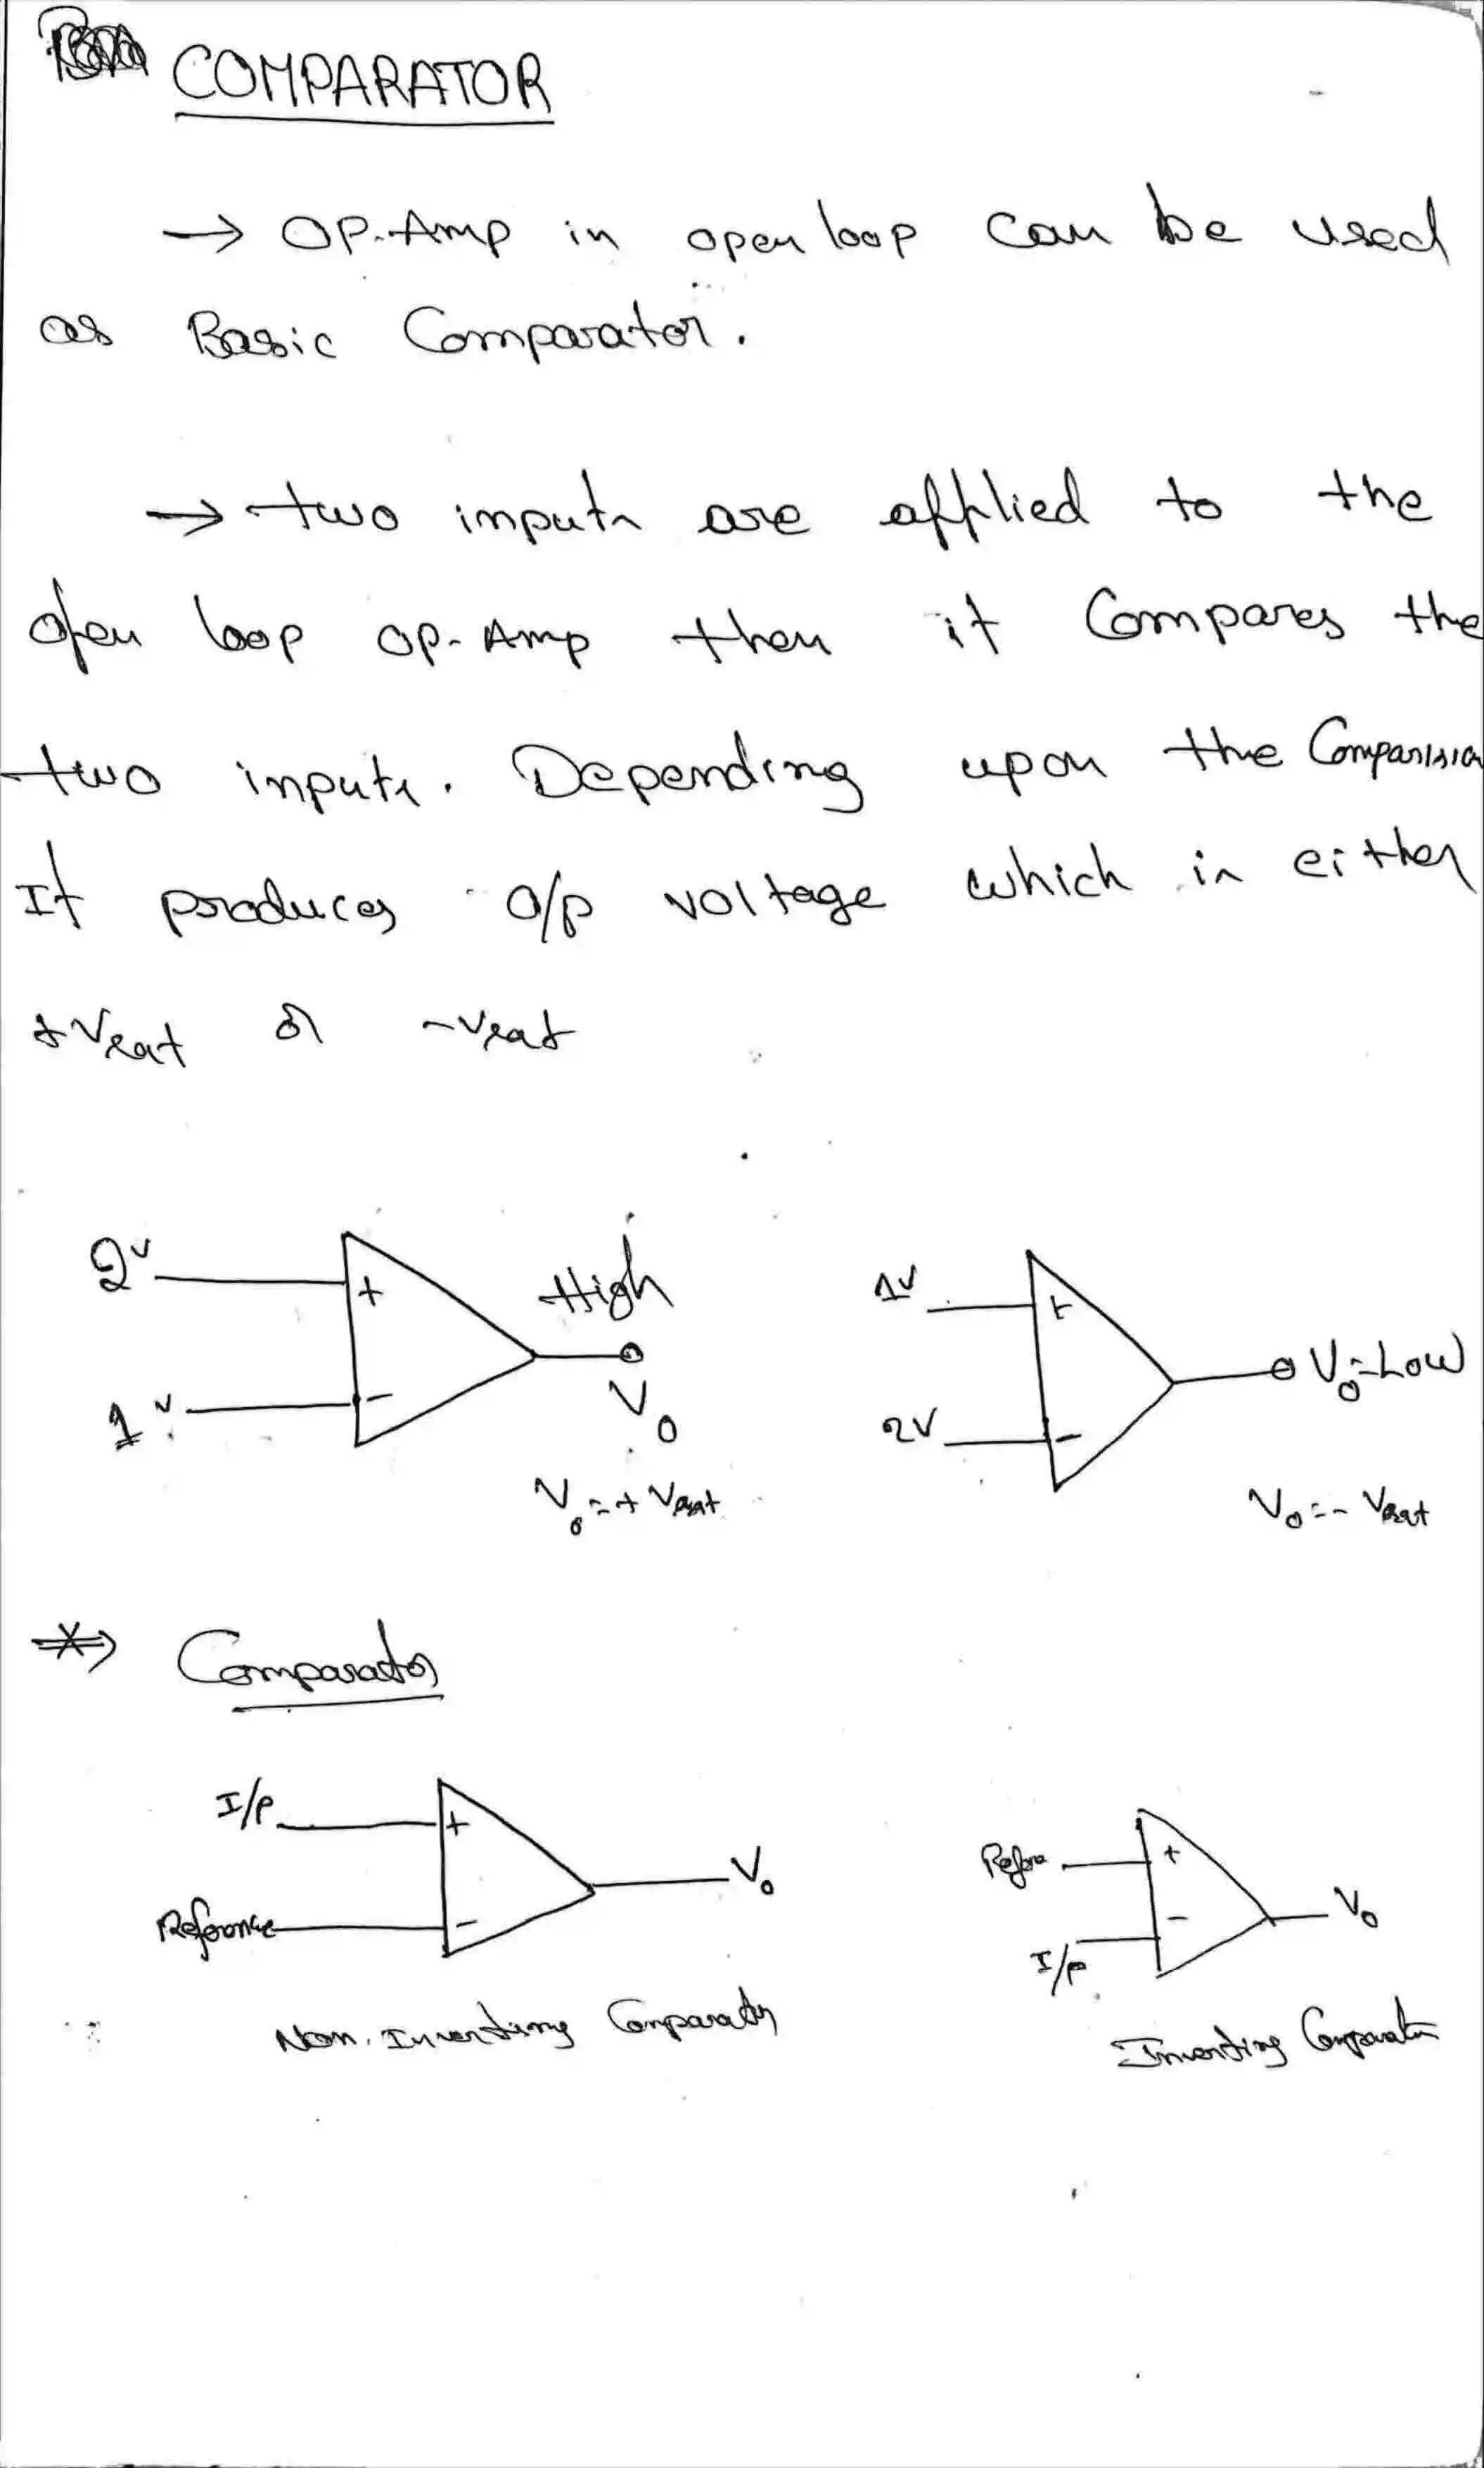 COMPARATOR
→ OP-Amp in open loop can be used
as Basic Comparator.
→ two inputs are applied to the
open loop op-Amp then it Compares the
two inputs. Depending upon the Comparision
It produces o/p voltage which is either
+Vsat or -Vsat
2v + High
1v - Vo
Vo = + Vsat
1v + Vo = Low
2v -
Vo = - Vsat
Comparator
I/P + Vo
Reference -
Non. Inverting Comparator
Refere + Vo
I/P -
Inverting Comparator